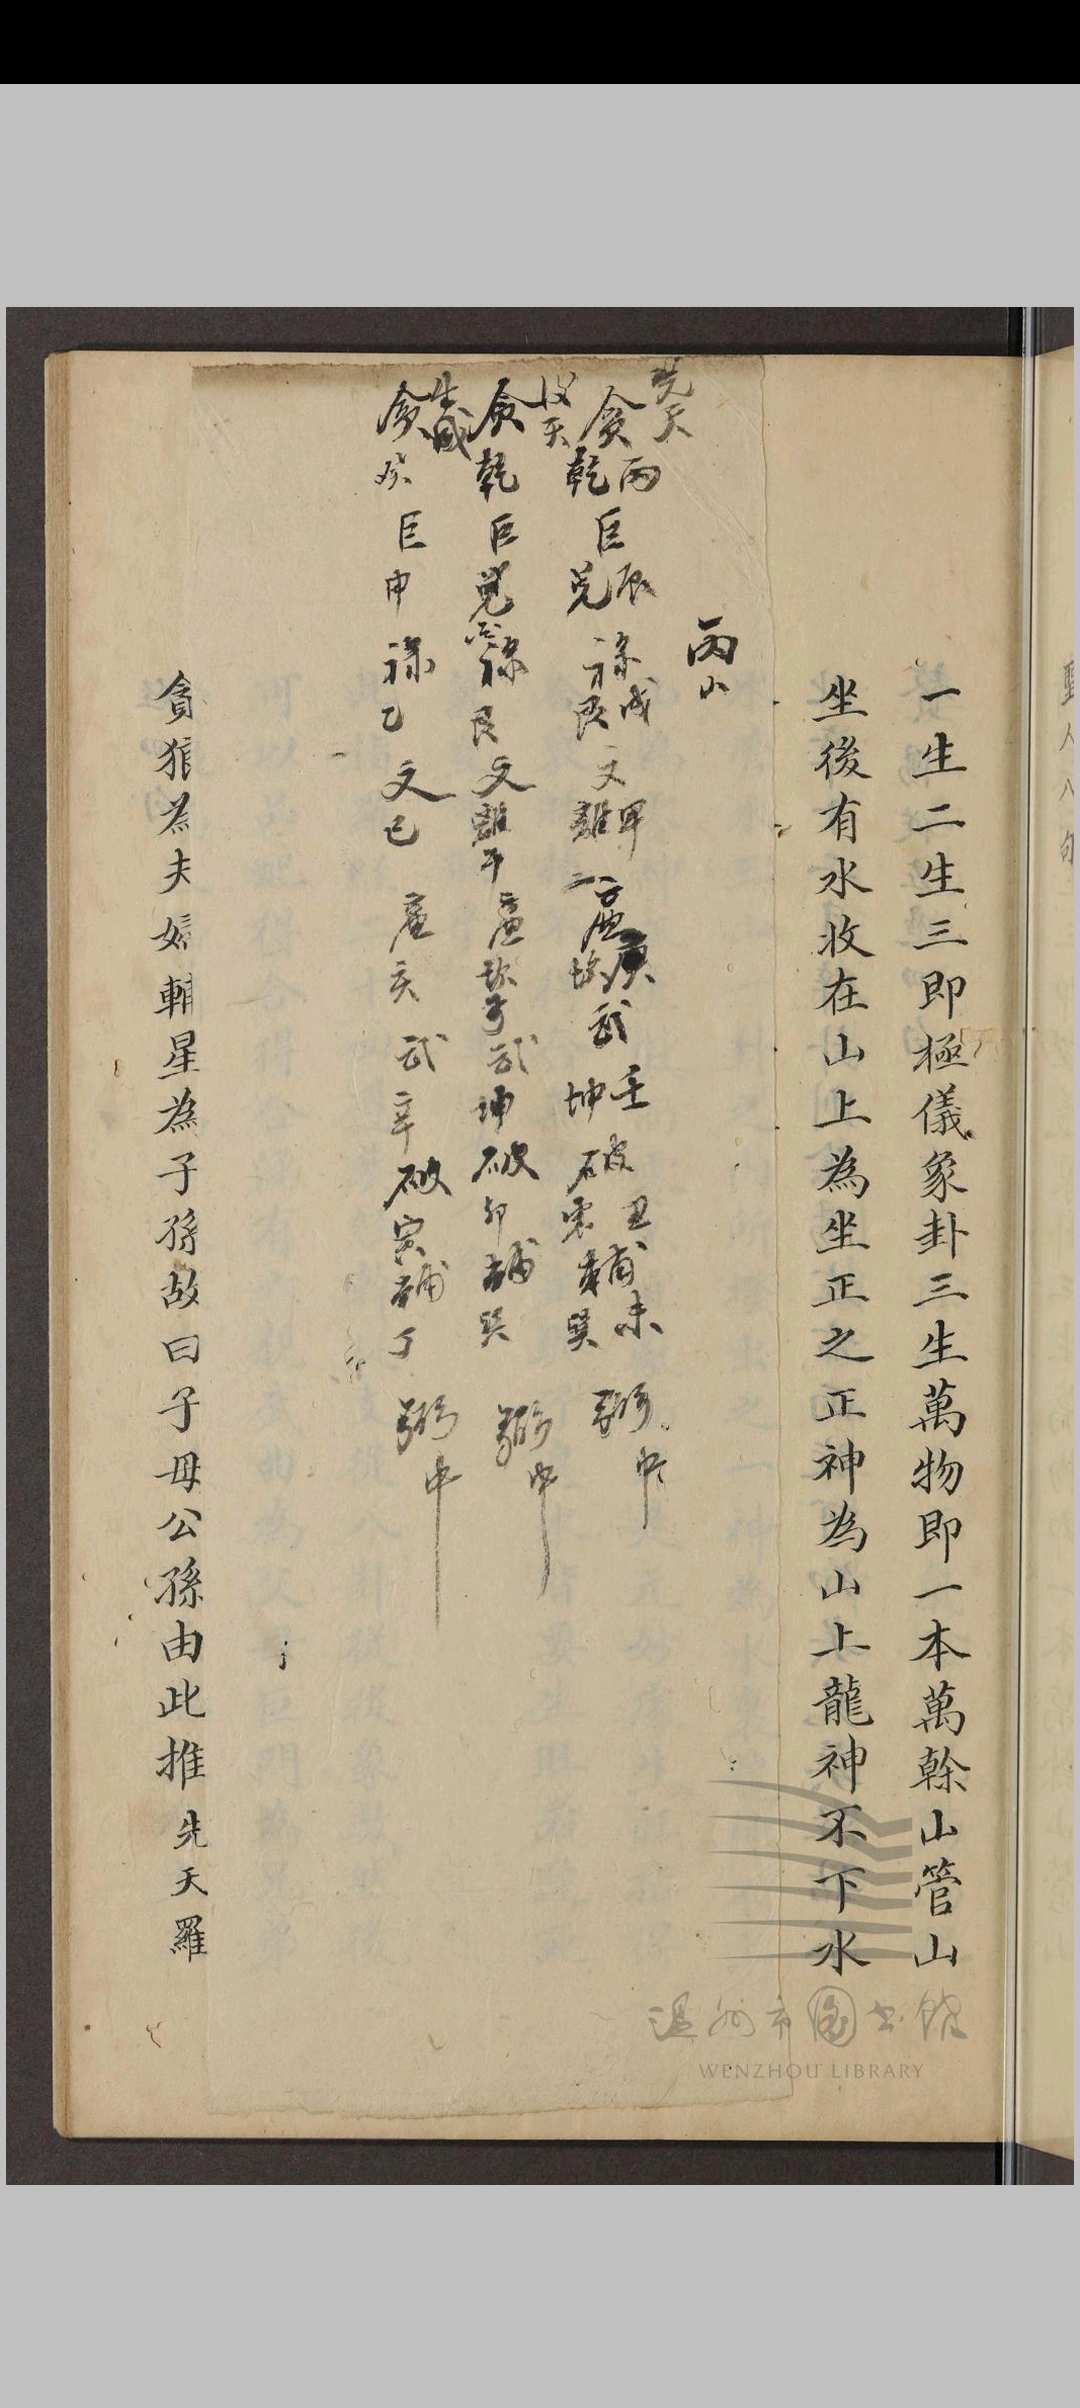 一生二生三即極儀象卦三生萬物即一本萬榦山管山
坐後有水收在山上為坐正之正神為山上龍神不下水
丙山
先天
貪丙巨辰祿戌文甲廉庚武壬破丑輔未弼中
乾兌艮離坎坤震巽
後天
貪乾巨兌祿艮文離午廉坎子武坤破卯輔巽弼中
生成
貪癸巨申祿乙文巳廉亥武辛破寅輔丁弼中
貪狼為夫婦輔星為子孫故曰子母公孫由此推先天羅
溫州市圖書館
WENZHOU LIBRARY